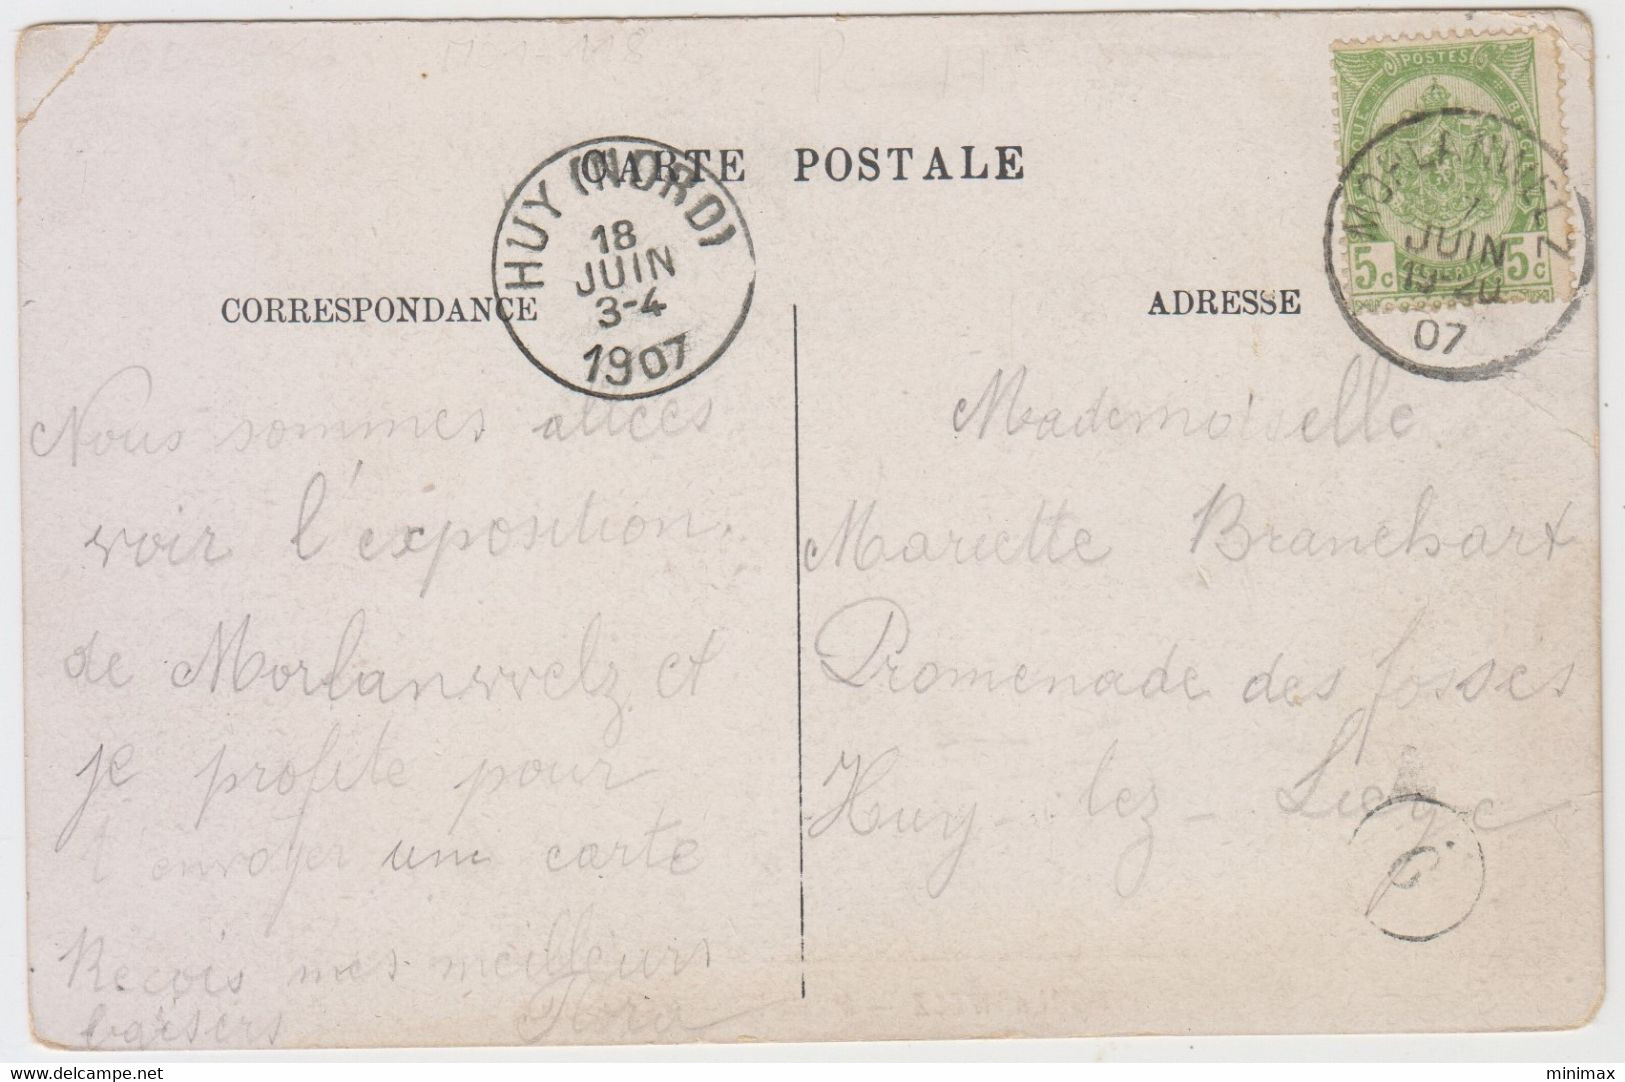 CARTE POSTALE
HUY (NORD)
18
JUIN
3-4
1907
POSTES
BELGIQUE
5c
5c
MORLANWELZ
JUIN
19-20
07
CORRESPONDANCE
ADRESSE
Nous sommes allées
voir l'exposition
de Morlanwelz et
je profite pour
t'envoyer une carte
Reçois mes meilleurs
baisers Flora
Mademoiselle
Mariette Branchart
Promenade des fosses
Huy-lez-Liège
delcampe.net
minimax